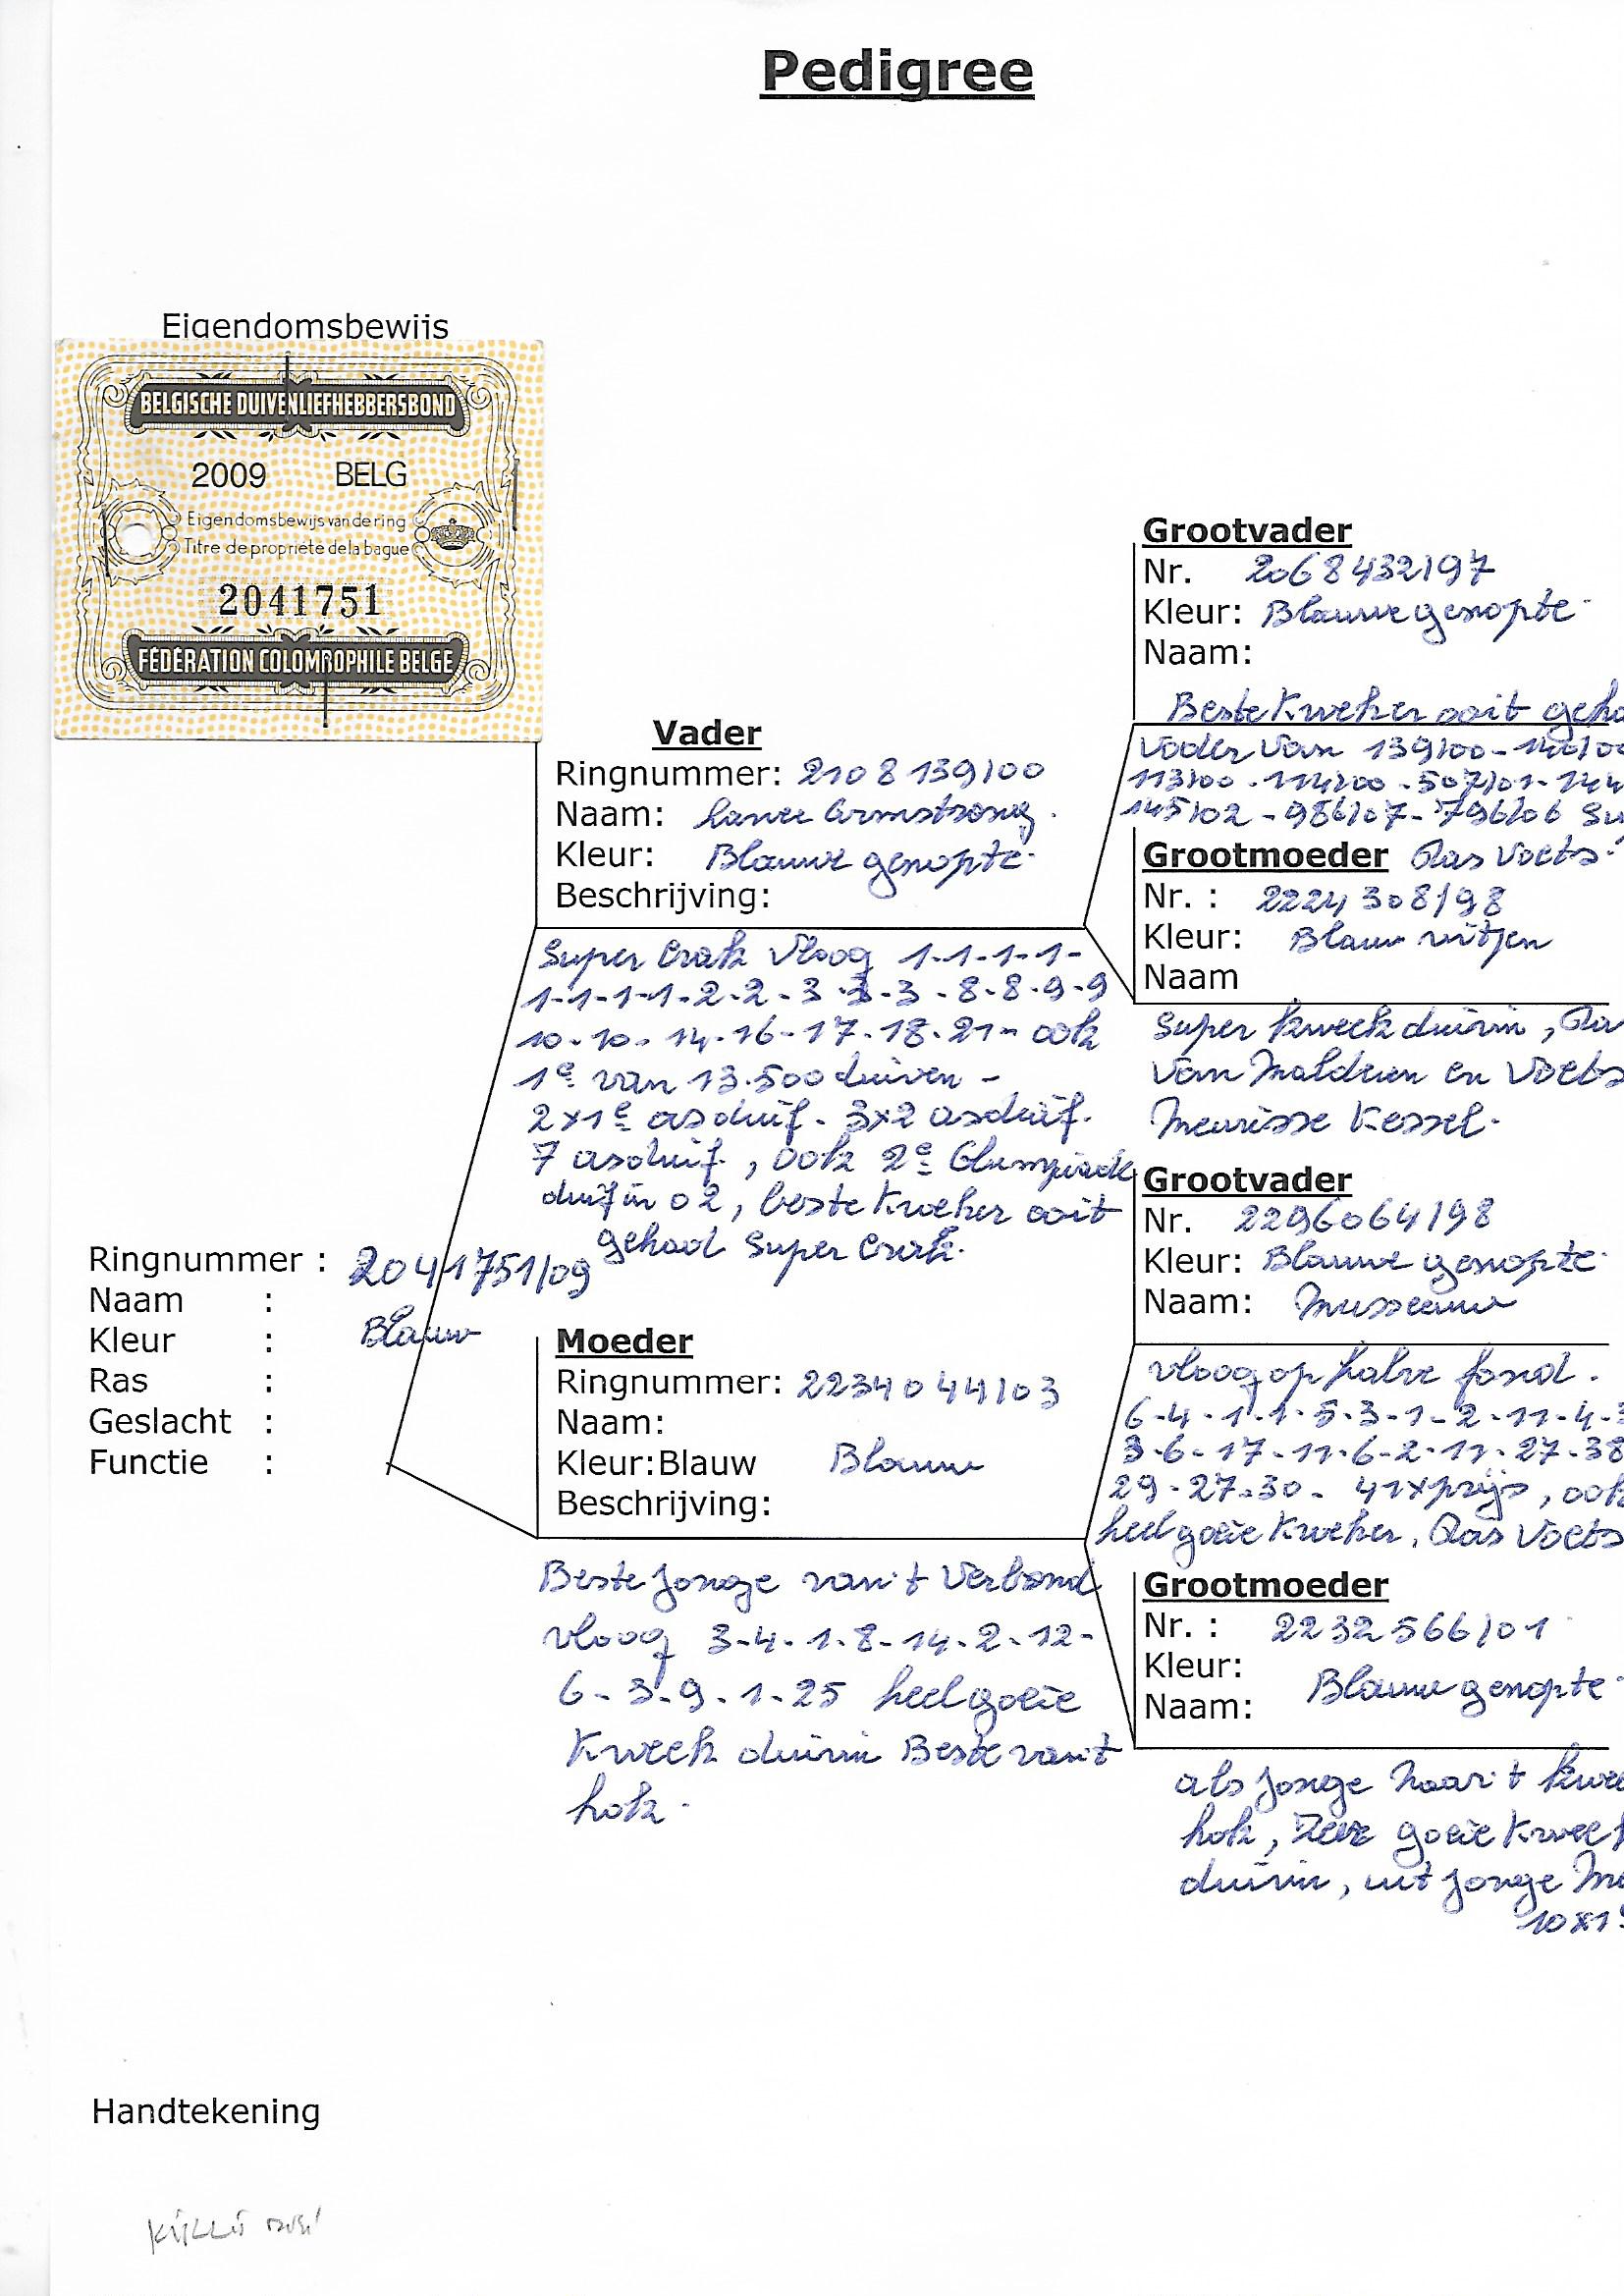 Pedigree
Eigendomsbewijs
BELGISCHE DUIVENLIEFHEBBERSBOND
2009 BELG
Eigendomsbewijs van de ring
Titre de propriété de la bague
2041751
FÉDÉRATION COLOMBOPHILE BELGE
Ringnummer : 2041751/09
Naam :
Kleur : Blauw
Ras :
Geslacht :
Functie :
Vader
Ringnummer: 2108139/00
Naam: Lance Armstrong.
Kleur: Blauwe genopte.
Beschrijving:
Super Crak Vloog 1-1-1-1-
1-1-1-1-2-2-3-3-3-8-8-9-9
10-10-14-16-17-18-21- ook
1e van 13.500 duiven -
2x1e asduif. 3x2 asduif.
7 asduif, ook 2e Olumpiade
duif in 02, beste Kweker ooit
gehad Super Crak.
Moeder
Ringnummer: 2234044/03
Naam:
Kleur:Blauw Blauw
Beschrijving:
Beste Jonge van't Verbond
vloog 3-4-1-8-14-2-12-
6-3-9-1-25 heel goeie
Kweek duivin Beste van't
hok.
Grootvader
Nr. 2068432/97
Kleur: Blauwe genopte.
Naam:
Beste Kweker ooit geha
Vader Van 139/00-140/00
113/00-114/00-507/01-144
145/02-986/07-796/06 Su
Grootmoeder Ras Voets.
Nr. : 2224308/98
Kleur: Blauw witpen
Naam
Super kweek duivin, Ra
Van Malderen en Voets
Meurisse Kessel.
Grootvader
Nr. 2296064/98
Kleur: Blauwe genopte.
Naam: Musseeuw
vloog op halve fond.
6-4-1-1-5-3-1-2-11-4-3
3-6-17-11-6-2-11-27-38
29-27-30- 41xprijs, ook
heel goeie Kweker, Ras Voets
Grootmoeder
Nr. : 2232566/01
Kleur:
Naam: Blauwe genopte.
als Jonge naar't kwee
hok, zeer goeie Kweek
duivin, uit Jonge Mu
10x1e
Handtekening